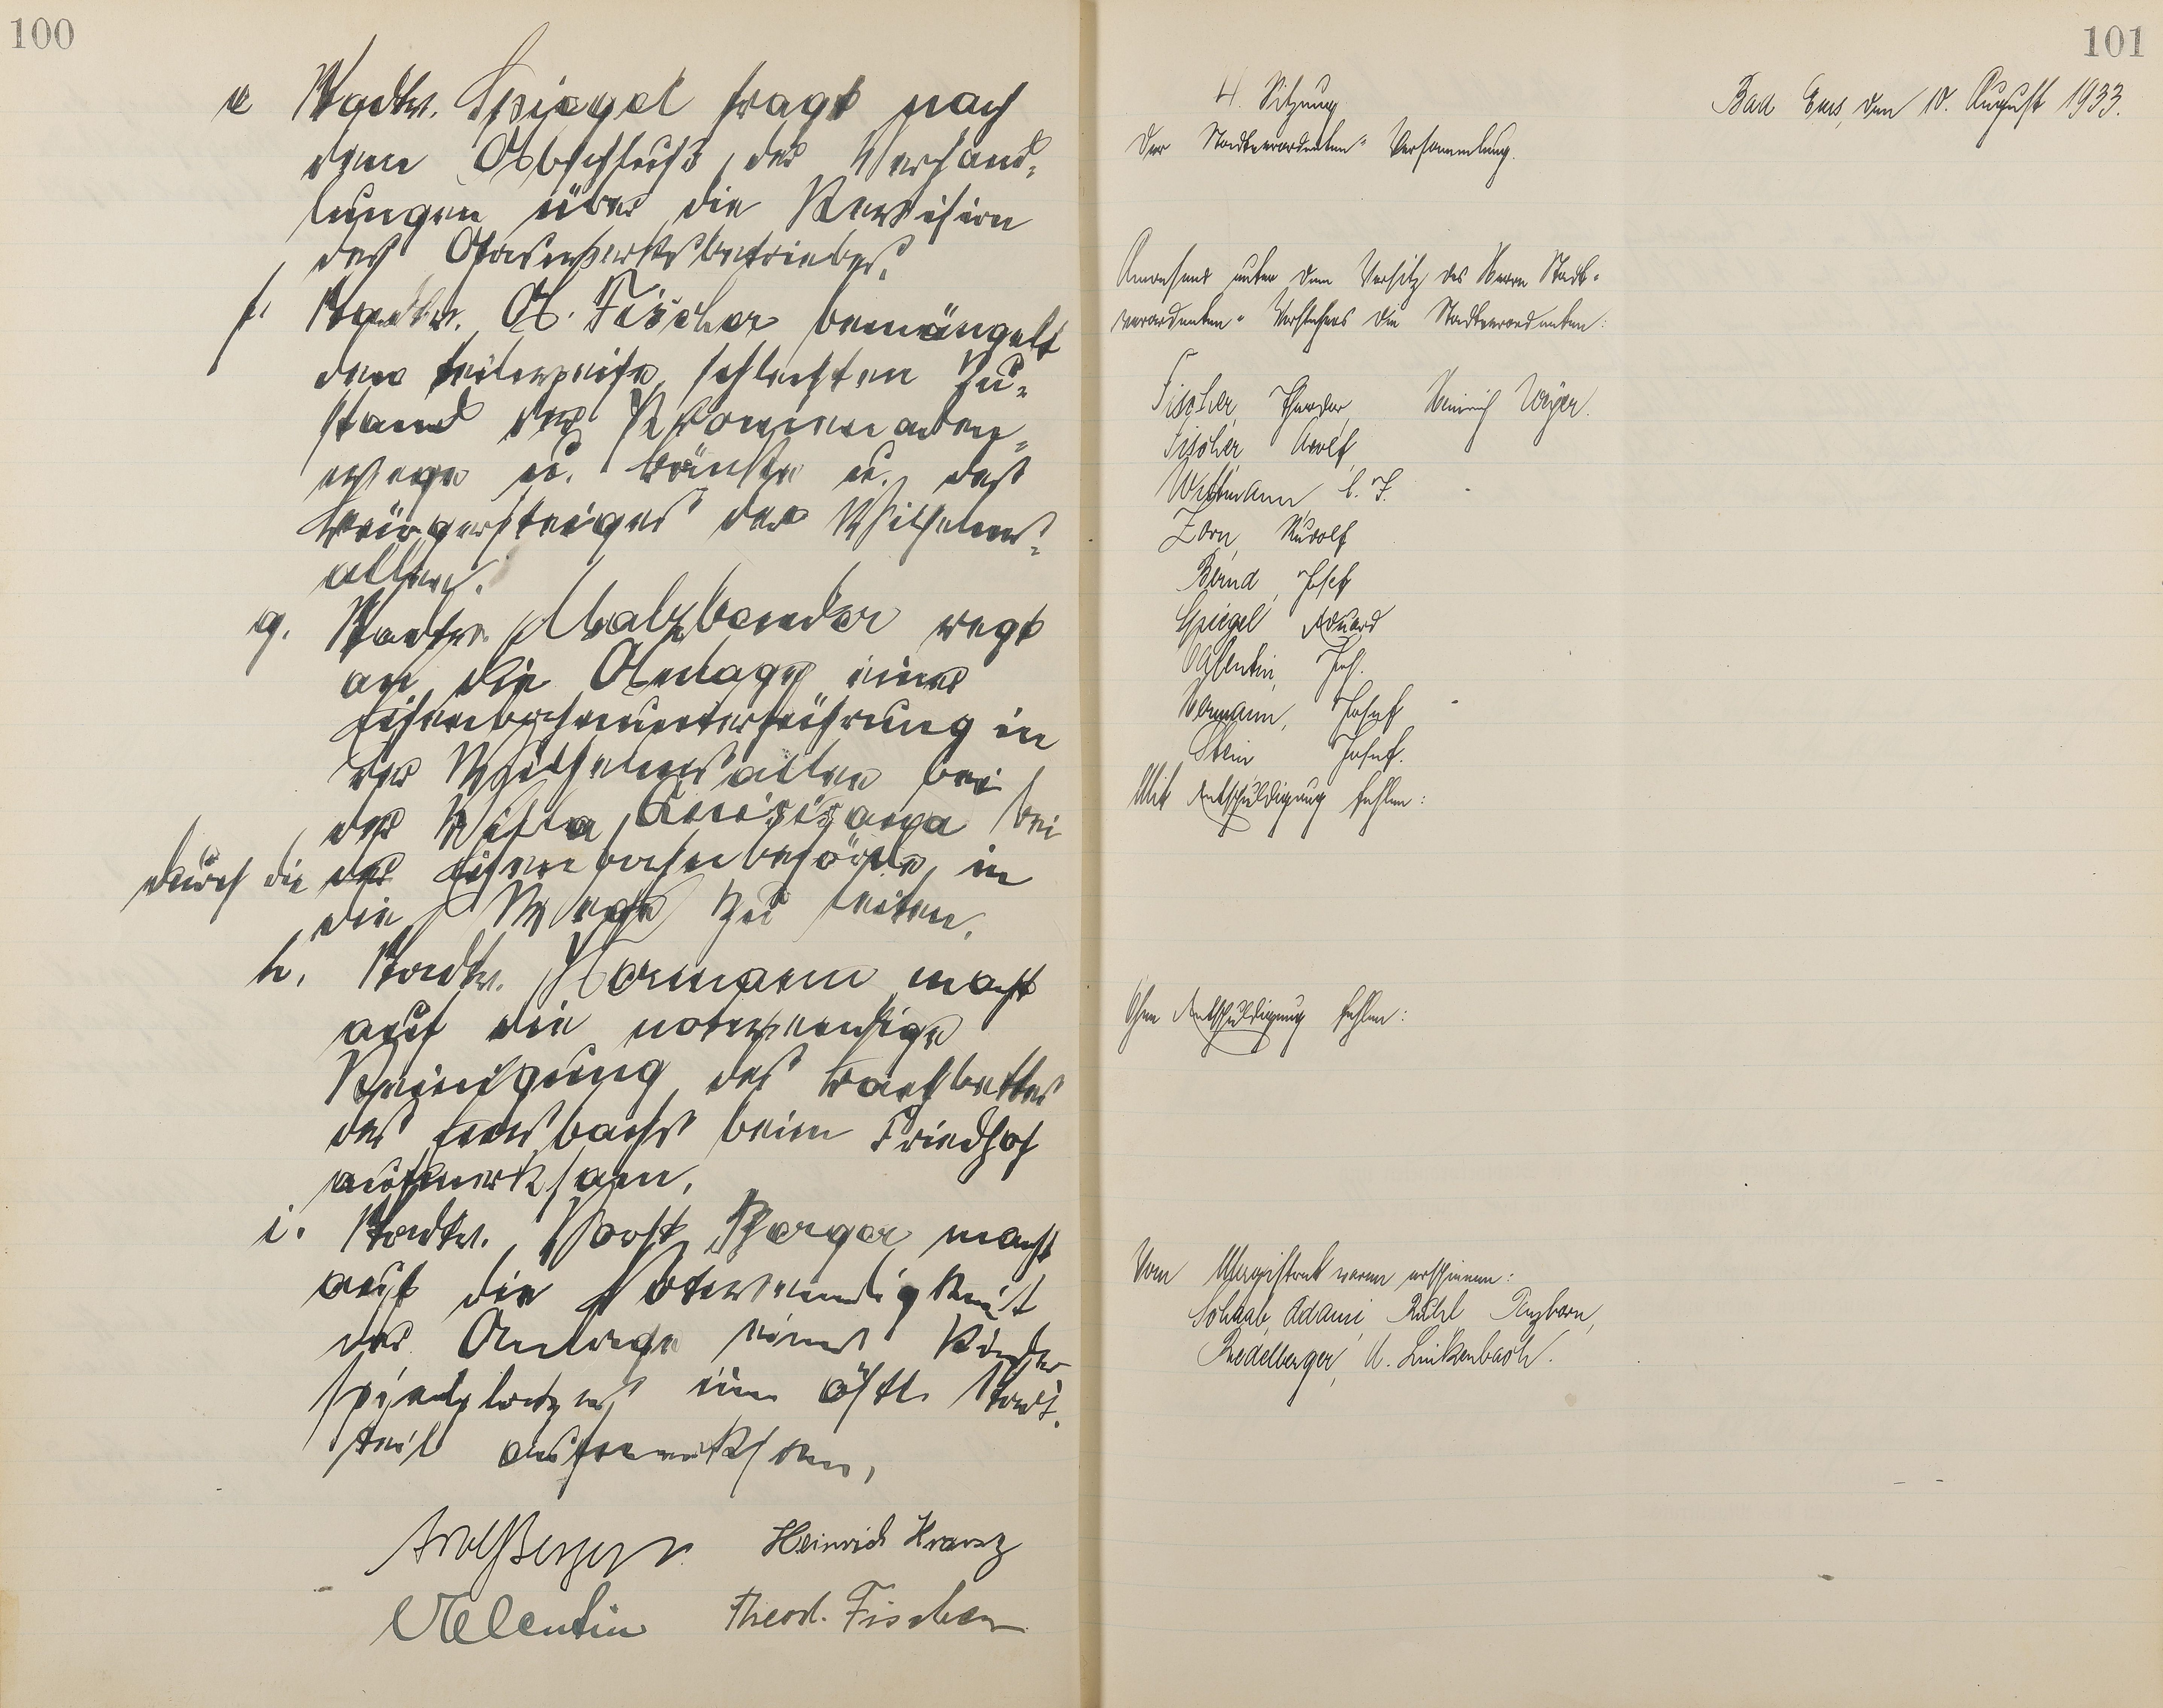 100
e Stadtv. Spiegel fragt nach
dem Abschluß der Verhand-
lungen über die Revision
des Gaswerksbetriebes.
f. Stadtv. A. Fischer bemängelt
den teilweise schlechten Zu-
stand der Promenaden-
wege u. Bänke u. des
Bürgersteiges der Wilhelms-
allee.
g. Stadtv. Malzbender regt
an die Anlage einer
Eisenbahnunterführung in
der Wilhelmsallee bei
der Villa bei
durch die der Eisenbahnbehörde in
die Wege zu leiten.
h. Stadtv. Hermann macht
auf die notwendige
Reinigung des Bachbettes
des Emsbachs beim Friedhof
aufmerksam.
i. Stadtv. Vorst. Berger macht
auf die Notwendigkeit
der Anlage eines Kinder
spielplatzes im östl. Stadt-
teil aufmerksam.
Adolf Berger Heinrich Kranz
Valentin Theod. Fischer
101
4. Sitzung
der Stadtverordneten-Versammlung.
Bad Ems, den 10. August 1933.
Anwesend unter dem Vorsitz des Herrn Stadt-
verordneten-Vorstehers die Stadtverordneten:
Fischer, Theodor, Heinrich Weyer.
Fischer Adolf
Wittmann
Zorn, Rudolf
Bernd, Josef
Spiegel Eduard
Valentin, Joh.
Hermann, Josef
Stein Josef.
Mit Entschuldigung fehlen:
Ohne Entschuldigung fehlen:
Vom Magistrat waren erschienen:
Schaab, Adami Rühl
Riedelberger, u. Linkenbach.